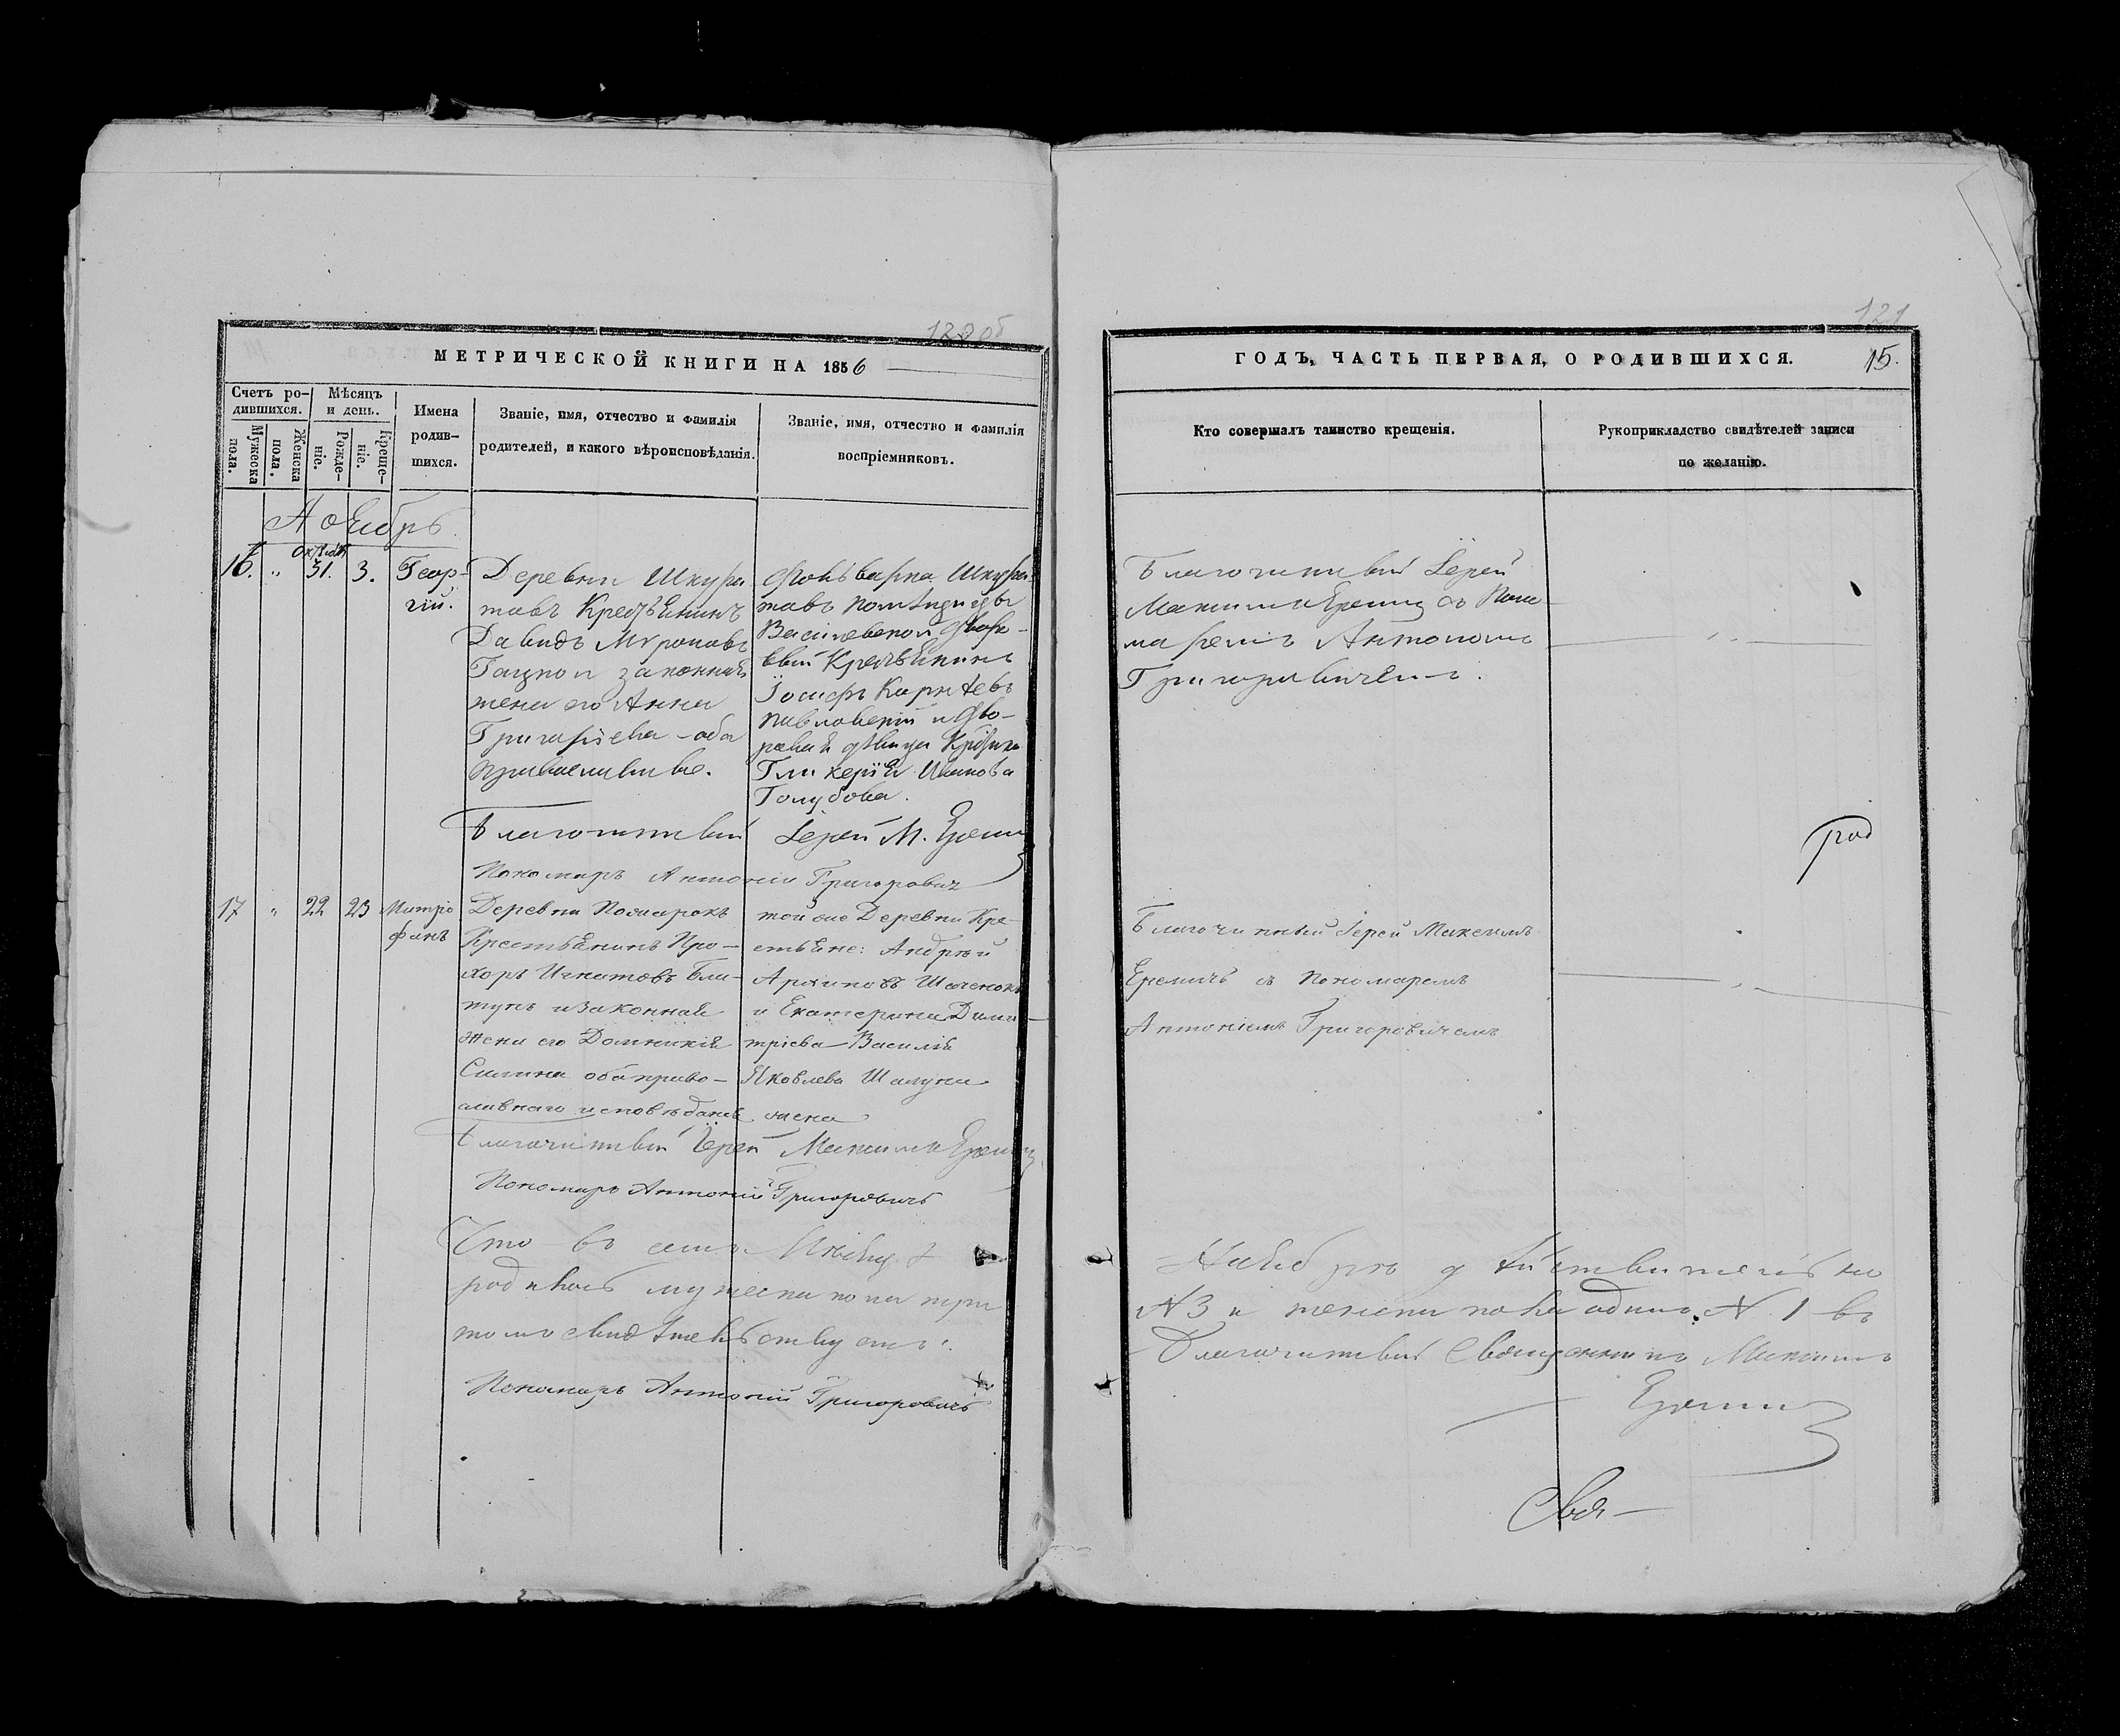 120 об
МЕТРИЧЕСКОЙ КНИГИ НА 1856
Счетъ ро-
дившихся.
Мѣсяцъ
и день.
Мужеска
пола.
Женска
пола.
Рожде-
ніе.
Креще-
ніе.
Имена
родив-
шихся.
Званіе, имя, отчество и фамилія
родителей, и какого вѣроисповѣданія.
Званіе, имя, отчество и фамилія
воспріемниковъ.
Ноябрь
16. " Октября 31. 3. Геор-
гій.
Деревни Шкура
товъ Крестьянинъ
Давидъ Мироновъ
законная
жена его Анна
Григорьева - оба
православные.
Фольварка Шкура-
товъ помѣщицы
дворо-
вый Крестьянинъ
Іосифъ
Павловскій и Дво-
ровая дѣвица
Гликерія Иванова
Голубова.
Благочинный Іерей М. Еремич
Пономарь Антоній Григорович
17 " 22 23 Митро
фанъ
Деревни
Крестьянинъ Про-
хоръ Игнатовъ
и законная
жена его Домникія
оба право-
славнаго исповѣданія
той же Деревни Кре-
стьяне: Андрей
Архиповъ
и Екатерина Дими
тріева Василія
Яковлева
жена
Благочинный Іерей Максимъ Еремич
Пономарь Антоній Григоровичъ
Что въ семъ Мѣсяцѣ
родилось мужеска пола три
томъ свидѣтельствуемъ:
Пономарь Антоній Григоровичъ
121
ГОДЪ, ЧАСТЬ ПЕРВАЯ, О РОДИВШИХСЯ.
15.
Кто совершалъ таинство крещенія.
Рукоприкладство свидѣтелей записи
по желанію.
Благочинный Іерей
Максимъ Еремич съ Поно-
маремъ Антоніемъ
Григоровичемъ.
род
Благочинный Іерей Максимъ
Еремичъ съ Пономаремъ
Антоніемъ Григоровичемъ
Ноябрѣ дѣйствительно
№ 3 и женска пола одинъ № 1 въ
Благочинный Священникъ Максимъ
Еремич
Свя-